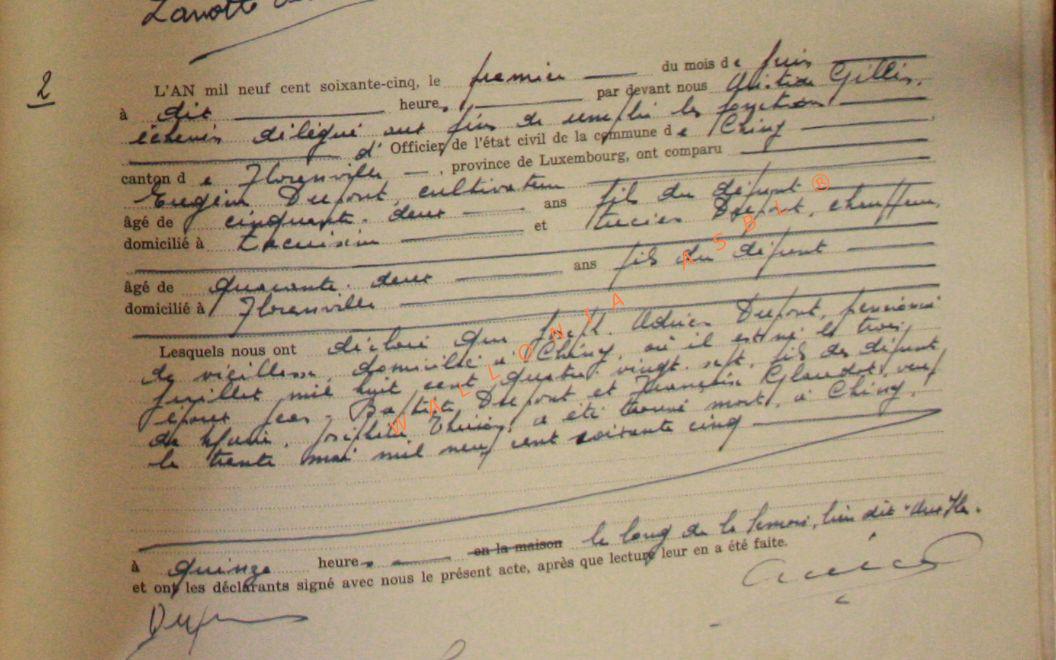 Lanotte
2
L'AN mil neuf cent soixante-cinq, le premier du mois de juin
à dix heures, par devant nous Gillis,
échevin délégué aux fins de remplir les fonctions
d' Officier de l'état civil de la commune de Chiny
canton de Florenville, province de Luxembourg, ont comparu
Eugène Dupont, cultivateur
âgé de cinquante-deux ans fils du défunt
domicilié à Lacuisine et Lucien Dupont, chauffeur,
âgé de quarante-deux ans fils du défunt
domicilié à Florenville
Lesquels nous ont déclaré que Joseph Adrien Dupont, pensionné
de vieillesse, domicilié à Chiny, où il est né le trois
juillet mil huit cent quatre vingt sept, fils des défunts
époux Jean-Baptiste Dupont et Françoise veuf
de Marie Joséphine a été trouvé mort, à Chiny,
le trente mai mil neuf cent soixante cinq
à quinze heures, en la maison le long de la Semois, lieu dit
et ont les déclarants signé avec nous le présent acte, après que lecture leur en a été faite.
WALLONIA ASBL ®